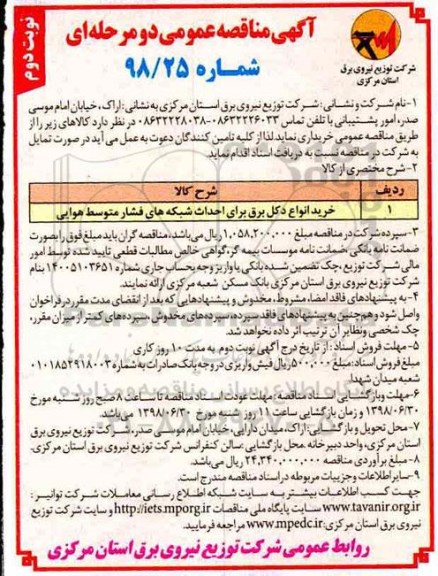 نوبت دوم
آگهی مناقصه عمومی دو مرحله ای
شماره ۹۸/۲۵
شرکت توزیع نیروی برق
استان مرکزی
۱-نام شرکت و نشانی : شرکت توزیع نیروی برق استان مرکزی به نشانی : اراک، خیابان امام موسی
صدر، امور پشتیبانی با تلفن تماس ۰۸۶۳۲۲۲۶۰۳۳ -۰۸۶۳۲۲۲۸۰۳۸ در نظر دارد کالاهای زیر را از
طریق مناقصه عمومی خریداری نماید. لذا از کلیه تامین کنندگان دعوت به عمل می آید در صورت تمایل
به شرکت در مناقصه نسبت به دریافت اسناد اقدام نماید
۲-شرح مختصری از کالا:
ردیف شرح کالا
۱ خرید انواع دکل برق برای احداث شبکه های فشار متوسط هوایی
۳-سپرده شرکت در مناقصه مبلغ ۱،۰۵۸،۲۰۰،۰۰۰ ریال می باشد، مناقصه گران باید مبلغ فوق را بصورت
ضمانت نامه بانکی، ضمانت نامه موسسات بیمه گر، گواهی خالص مطالبات قطعی تایید شده توسط امور
مالی شرکت توزیع، چک تضمین شده بانکی یا واریز وجه بحساب جاری شماره ۱۴۰۰۵۱۰۳۶۵۱ بنام
شرکت توزیع نیروی برق استان مرکزی بانک مسکن شعبه مرکزی ارائه نمایند.
۴-به پیشنهادهای فاقد امضاء، مشروط، مخدوش و پیشنهادهایی که بعد از انقضای مدت مقرر در فراخوان
واصل شود و هم چنین به پیشنهادهای فاقد سپرده، سپرده های مخدوش، سپرده های کمتر از میزان مقرر،
چک شخصی و نظایر آن ترتیب اثر داده نخواهد شد.
۵-مهلت فروش اسناد: از تاریخ درج آگهی نوبت دوم به مدت ۱۰ روز کاری
مبلغ فروش اسناد: مبلغ ۵۰۰،۰۰۰ ریال فیش واریزی در وجه بانک صادرات به شماره ۰۱۰۱۸۵۲۹۱۸۰۰۳
شعبه میدان شهدا
۶-مهلت و بازگشایی اسناد مناقصه: مهلت عودت اسناد مناقصه تا ساعت ۸ صبح روز شنبه مورخ
۱۳۹۸/۰۶/۳۰ و زمان بازگشایی ساعت ۱۱ روز شنبه مورخ ۱۳۹۸/۰۶/۳۰ می باشد.
۷-محل تحویل و بازگشایی: اراک، میدان دارایی، خیابان امام موسی صدر، شرکت توزیع نیروی برق
استان مرکزی، واحد دبیرخانه. محل بازگشایی سالن کنفرانس شرکت توزیع نیروی برق استان مرکزی.
۸-مبلغ برآوردی مناقصه ۲۴،۳۴۰،۰۰۰،۰۰۰ ریال می باشد.
۹-سایر اطلاعات و جزییات مربوطه در اسناد مناقصه مندرج است.
جهت کسب اطلاعات بیشتر به سایت شبکه اطلاع رسانی معاملات شرکت توانیر :
www.tavanir.org.ir سایت پایگاه ملی مناقصات http://iets.mporg.ir و سایت شرکت توزیع
نیروی برق استان مرکزی: www.mpedc.ir مراجعه فرمایید.
روابط عمومی شرکت توزیع نیروی برق استان مرکزی